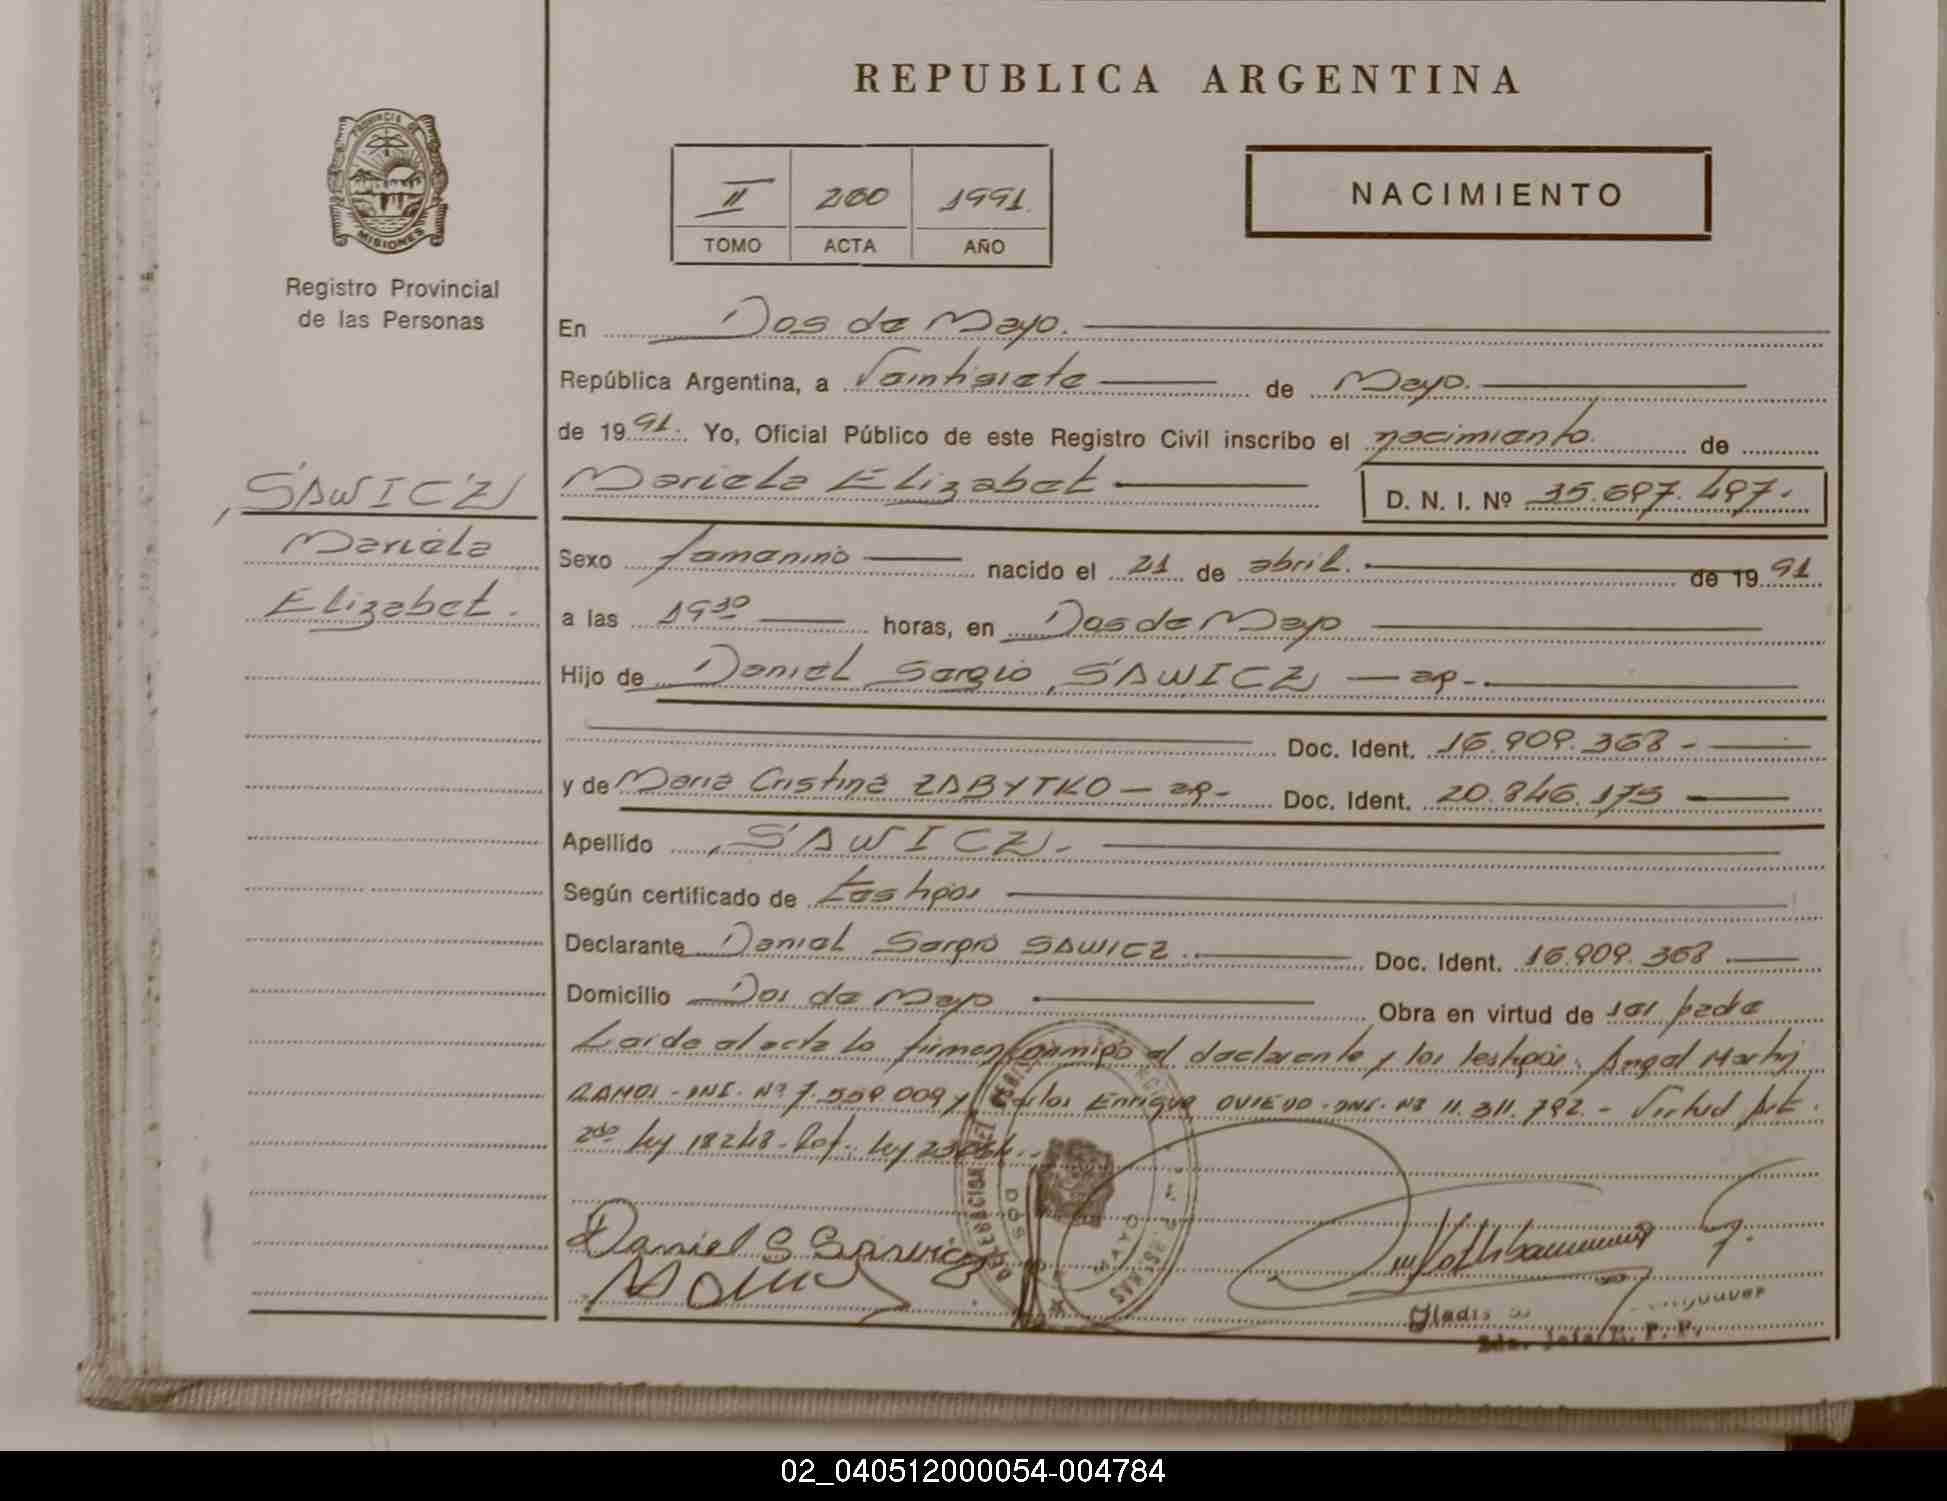 REPUBLICA ARGENTINA
PROVINCIA DE
MISIONES
Registro Provincial
de las Personas
II 200 1991
TOMO ACTA AÑO
NACIMIENTO
En Dos de Mayo.
República Argentina, a Veintisiete de Mayo.
de 1991. Yo, Oficial Público de este Registro Civil inscribo el nacimiento. de
SAWICZ
Mariela
Elizabet.
Mariela Elizabet D. N. I. Nº 35.697.497.
Sexo femenino nacido el 21 de abril. de 1991
a las 19 30 horas, en Dos de Mayo
Hijo de Daniel Sergio SAWICZ — ap -.
Doc. Ident. 16.909.368 -
y de Maria Cristina ZABYTKO — ap - Doc. Ident. 20.846.175
Apellido SAWICZ.
Según certificado de testigos
Declarante Daniel Sergio SAWICZ. Doc. Ident. 16.909.368
Domicilio Dos de Mayo Obra en virtud de ser padre
Leida el acta la firmen conmigo el declarante y los testigos: Angel Martin
RAMOS - DNI. Nº 7.559.009 y Carlos Enrique OVIEDO - DNI. Nº 11.311.792. - Virtud Art.
2do ley 18248 - Ref. ley
Daniel S Sawicz
DELEGACION DEL REGISTRO
DOS DE MAYO
Gladis
R. P. P.
02_040512000054-004784